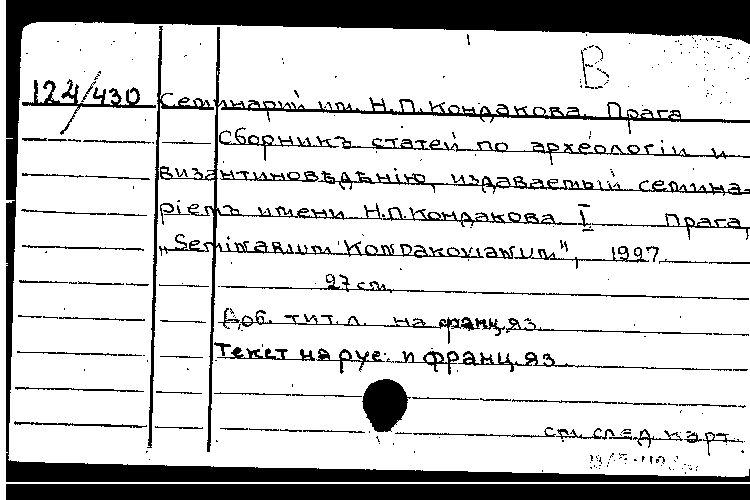 В
124/430 Семинарий им. Н.П. Кондакова. Прага
Сборникъ статей по археологіи и
византиновѣдѣнію, издаваемый семина-
ріемъ имени Н.П. Кондакова. I Прага,
„Seminarium Kondakovianum", 1927
27 cm.
Доб. тит. л. на франц. яз.
Текст на рус. и франц. яз.
см. след. карт.